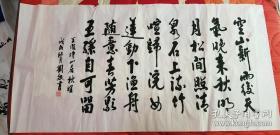 空山新雨後天
氣晚來秋明
月松間照清
泉石上流竹
喧歸浣女
蓮動下漁舟
隨意春芳歇
王孫自可留
王維詩山居秋暝
戊戌